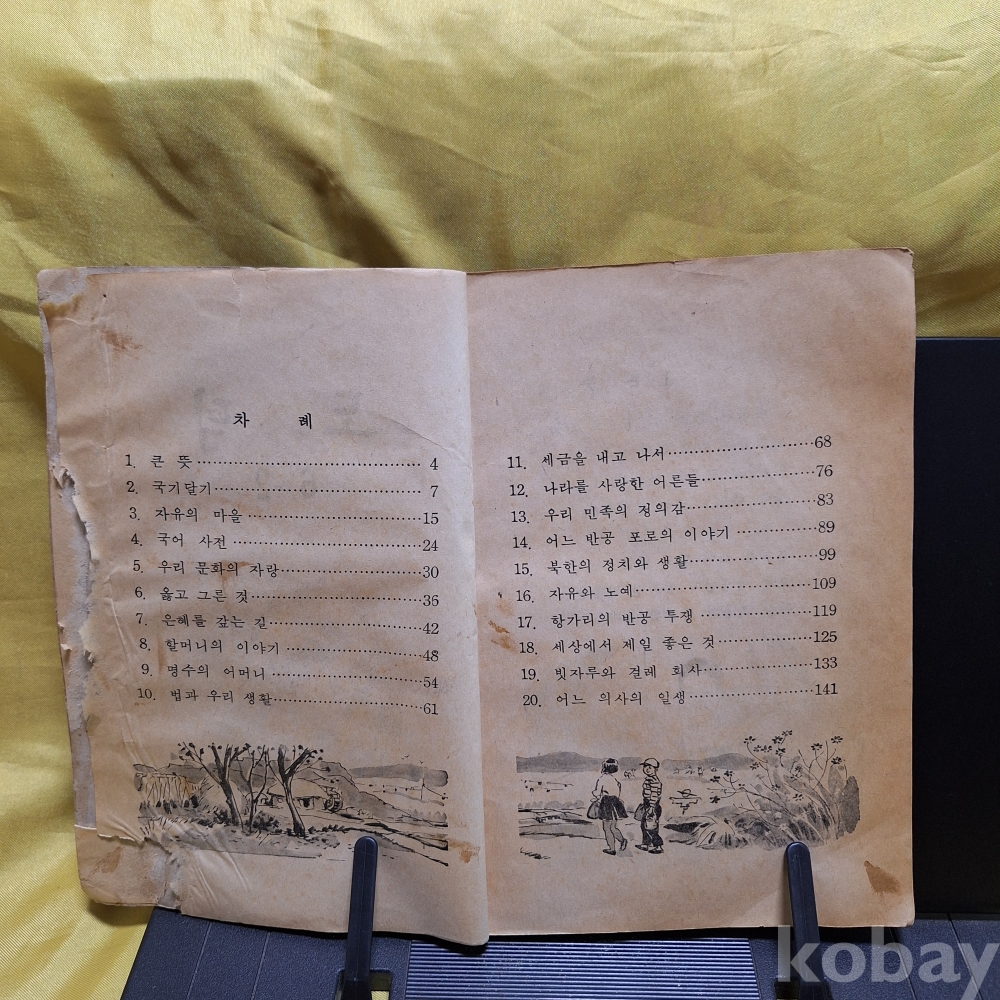 차 례
1. 큰 뜻 …… 4
2. 국기달기 …… 7
3. 자유의 마을 …… 15
4. 국어 사전 …… 24
5. 우리 문화의 자랑 …… 30
6. 옳고 그른 것 …… 36
7. 은혜를 갚는 길 …… 42
8. 할머니의 이야기 …… 48
9. 명수의 어머니 …… 54
10. 법과 우리 생활 …… 61
11. 세금을 내고 나서 …… 68
12. 나라를 사랑한 어른들 …… 76
13. 우리 민족의 정의감 …… 83
14. 어느 반공 포로의 이야기 …… 89
15. 북한의 정치와 생활 …… 99
16. 자유와 노예 …… 109
17. 항가리의 반공 투쟁 …… 119
18. 세상에서 제일 좋은 것 …… 125
19. 빗자루와 걸레 회사 …… 133
20. 어느 의사의 일생 …… 141
kobay